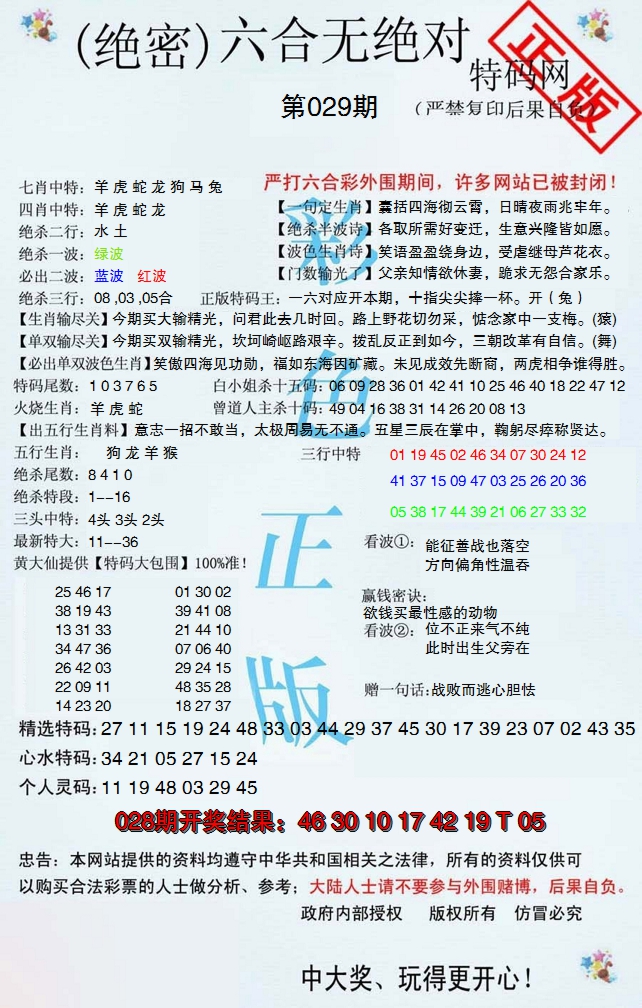 (绝密)六合无绝对
特码网
正版
第029期
(严禁复印后果自负)
七肖中特：羊 虎 蛇 龙 狗 马 兔
严打六合彩外围期间，许多网站已被封闭！
四肖中特：羊 虎 蛇 龙
【一句定生肖】囊括四海彻云霄，日晴夜雨兆牢年。
绝杀二行：水 土
【绝杀半波诗】各取所需好变迁，生意兴隆皆如愿。
绝杀一波：绿波
【波色生肖诗】笑语盈盈绕身边，受虐继母芦花衣。
必出二波：蓝波 红波
【门数输光了】父亲知情欲休妻，跪求无怨合家乐。
绝杀三行：08 ,03 ,05合
正版特码王：一六对应开本期，十指尖尖捧一杯。开（兔）
【生肖输尽关】今期买大输精光，问君此去几时回。路上野花切勿采，惦念家中一支梅。(猿)
【单双输尽关】今期买双输精光，坎坷崎岖路艰辛。拨乱反正到如今，三朝改革有自信。(舞)
【必出单双波色生肖】笑傲四海见功勋，福如东海因矿藏。未见成效先断脔，两虎相争谁得胜。
特码尾数：1 0 3 7 6 5
白小姐杀十五码：06 09 28 36 01 42 41 10 25 46 40 18 22 47 12
火烧生肖：羊 虎 蛇
曾道人主杀十码：49 04 16 38 31 14 26 20 08 13
【出五行生肖料】意志一招不敢当，太极周易无不通。五星三辰在掌中，鞠躬尽瘁称贤达。
五行生肖：狗 龙 羊 猴
三行中特
01 19 45 02 46 34 07 30 24 12
绝杀尾数：8 4 1 0
41 37 15 09 47 03 25 26 20 36
绝杀特段：1--16
05 38 17 44 39 21 06 27 33 32
三头中特：4头 3头 2头
最新特大：11--36
看波①：能征善战也落空
方向偏角性温吞
黄大仙提供【特码大包围】100%准！
25 46 17 01 30 02
38 19 43 39 41 08
13 31 33 21 44 10
34 47 36 07 06 40
26 42 03 29 24 15
22 09 11 48 35 28
14 23 20 18 27 37
赢钱密诀：
欲钱买最性感的动物
看波②：位不正来气不纯
此时出生父旁在
赠一句话:战败而逃心胆怯
彩色正版
精选特码：27 11 15 19 24 48 33 03 44 29 37 45 30 17 39 23 07 02 43 35
心水特码：34 21 05 27 15 24
个人灵码：11 19 48 03 29 45
028期开奖结果：46 30 10 17 42 19 T 05
忠告：本网站提供的资料均遵守中华共和国相关之法律，所有的资料仅供可
以购买合法彩票的人士做分析、参考；大陆人士请不要参与外围赌博，后果自负。
政府内部授权 版权所有 仿冒必究
中大奖、玩得更开心！